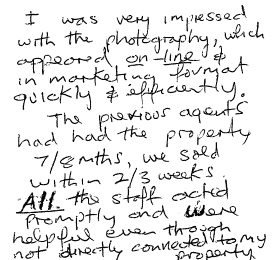 I was very impressed
with the photography, which
appeared on-line &
in marketing format
quickly & efficiently.
The previous agents
had had the property
7/8 mths, we sold
within 2/3 weeks.
All the staff acted
promptly and were
helpful even though
not directly connected to my
property